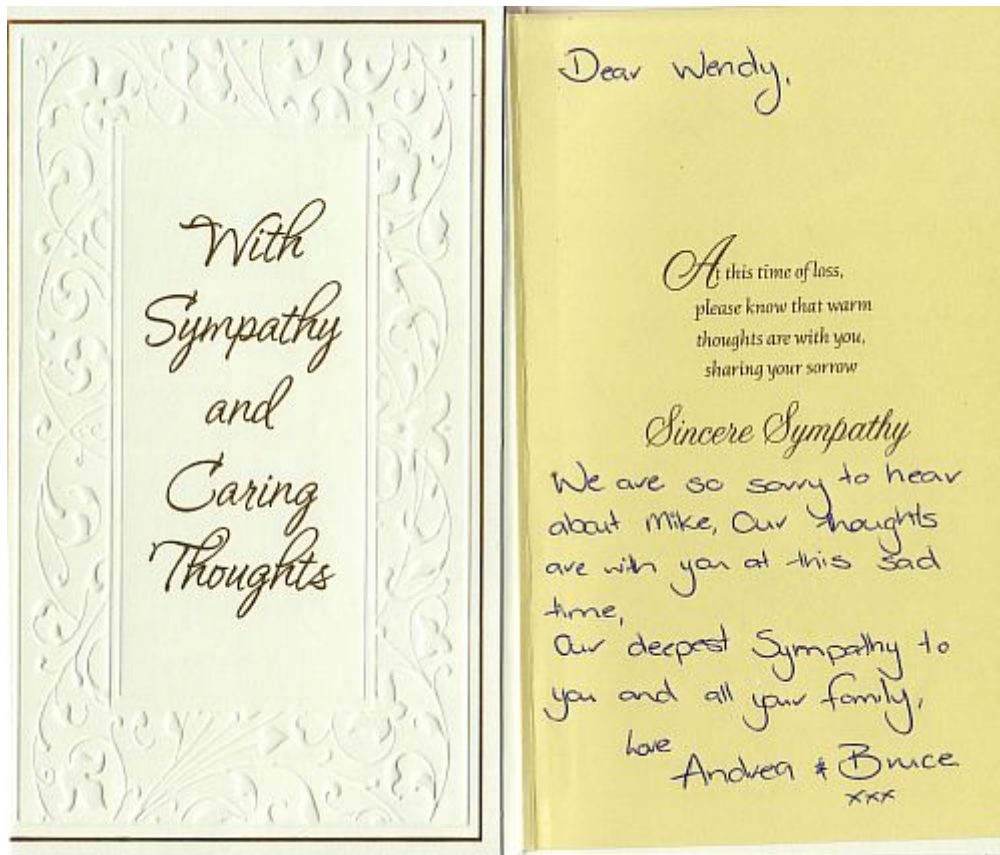 With
Sympathy
and
Caring
Thoughts
Dear Wendy,
At this time of loss,
please know that warm
thoughts are with you,
sharing your sorrow
Sincere Sympathy
We are so sorry to hear
about Mike, Our thoughts
are with you at this sad
time,
Our deepest Sympathy to
you and all your family,
love
Andrea & Bruce
xxx